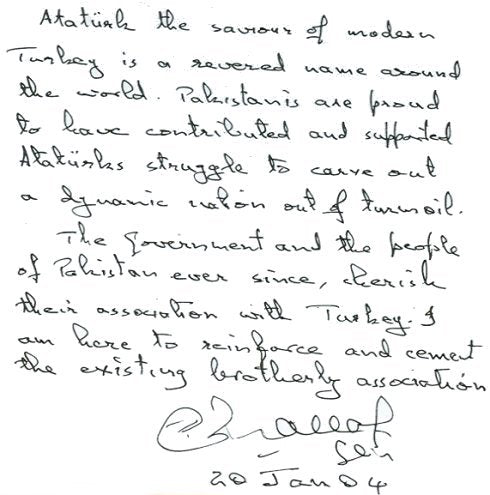 Atatürk the saviour of modern
Turkey is a revered name around
the world. Pakistanis are proud
to have contributed and supported
Atatürks struggle to carve out
a dynamic nation out of turmoil.
The Government and the people
of Pakistan ever since, cherish
their association with Turkey. I
am here to reinforce and cement
the existing brotherly association
Gen
20 Jan 04